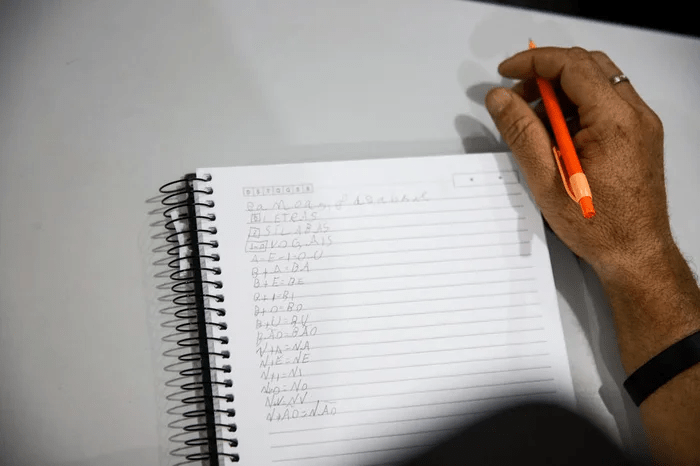 LETRAS
SILABAS
VOGAIS
A-E-I-O-U
B+A=BA
B+E=BE
B+I=BI
B+O=BO
B+U=BU
BÃO=BÃO
N+A=NA
N+E=NE
N+I=NI
N+O=NO
N+U=NU
N+ÃO=NÃO